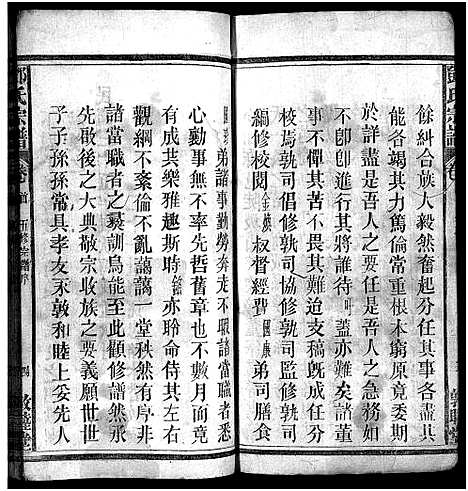 鄧氏宗譜
餘糾合族人毅然奮起分其事各盡其
能各竭其力篤倫常重根本窮原竟委
於詳盡是吾人之要任是吾人之要義
不卽卽創進行其將誰待時叶蓋亦嘗以
事不憚其苦不畏其難迫支稿旣成任分
司其責者若執司協修執司監修執司
編修校閱金煐叔督經費國康弟司其事者
國泰弟諸事勤勞奔走不暇諸當職者悉
心勷事無亦率先哲舊章也不數月而竟
成共樂樂雅趣斯時鏡亦聆命侍側仰
觀綱不紊倫不亂藹藹一堂秩然有序非
諸當職者之彞訓烏能至此觀修譜然承
先啟後之大典敬宗收族之要義願世世
子子孫孫常具孝友不敦和睦上妥先人
鄧氏宗譜
卷首
新修宗譜序
四
敦睦堂